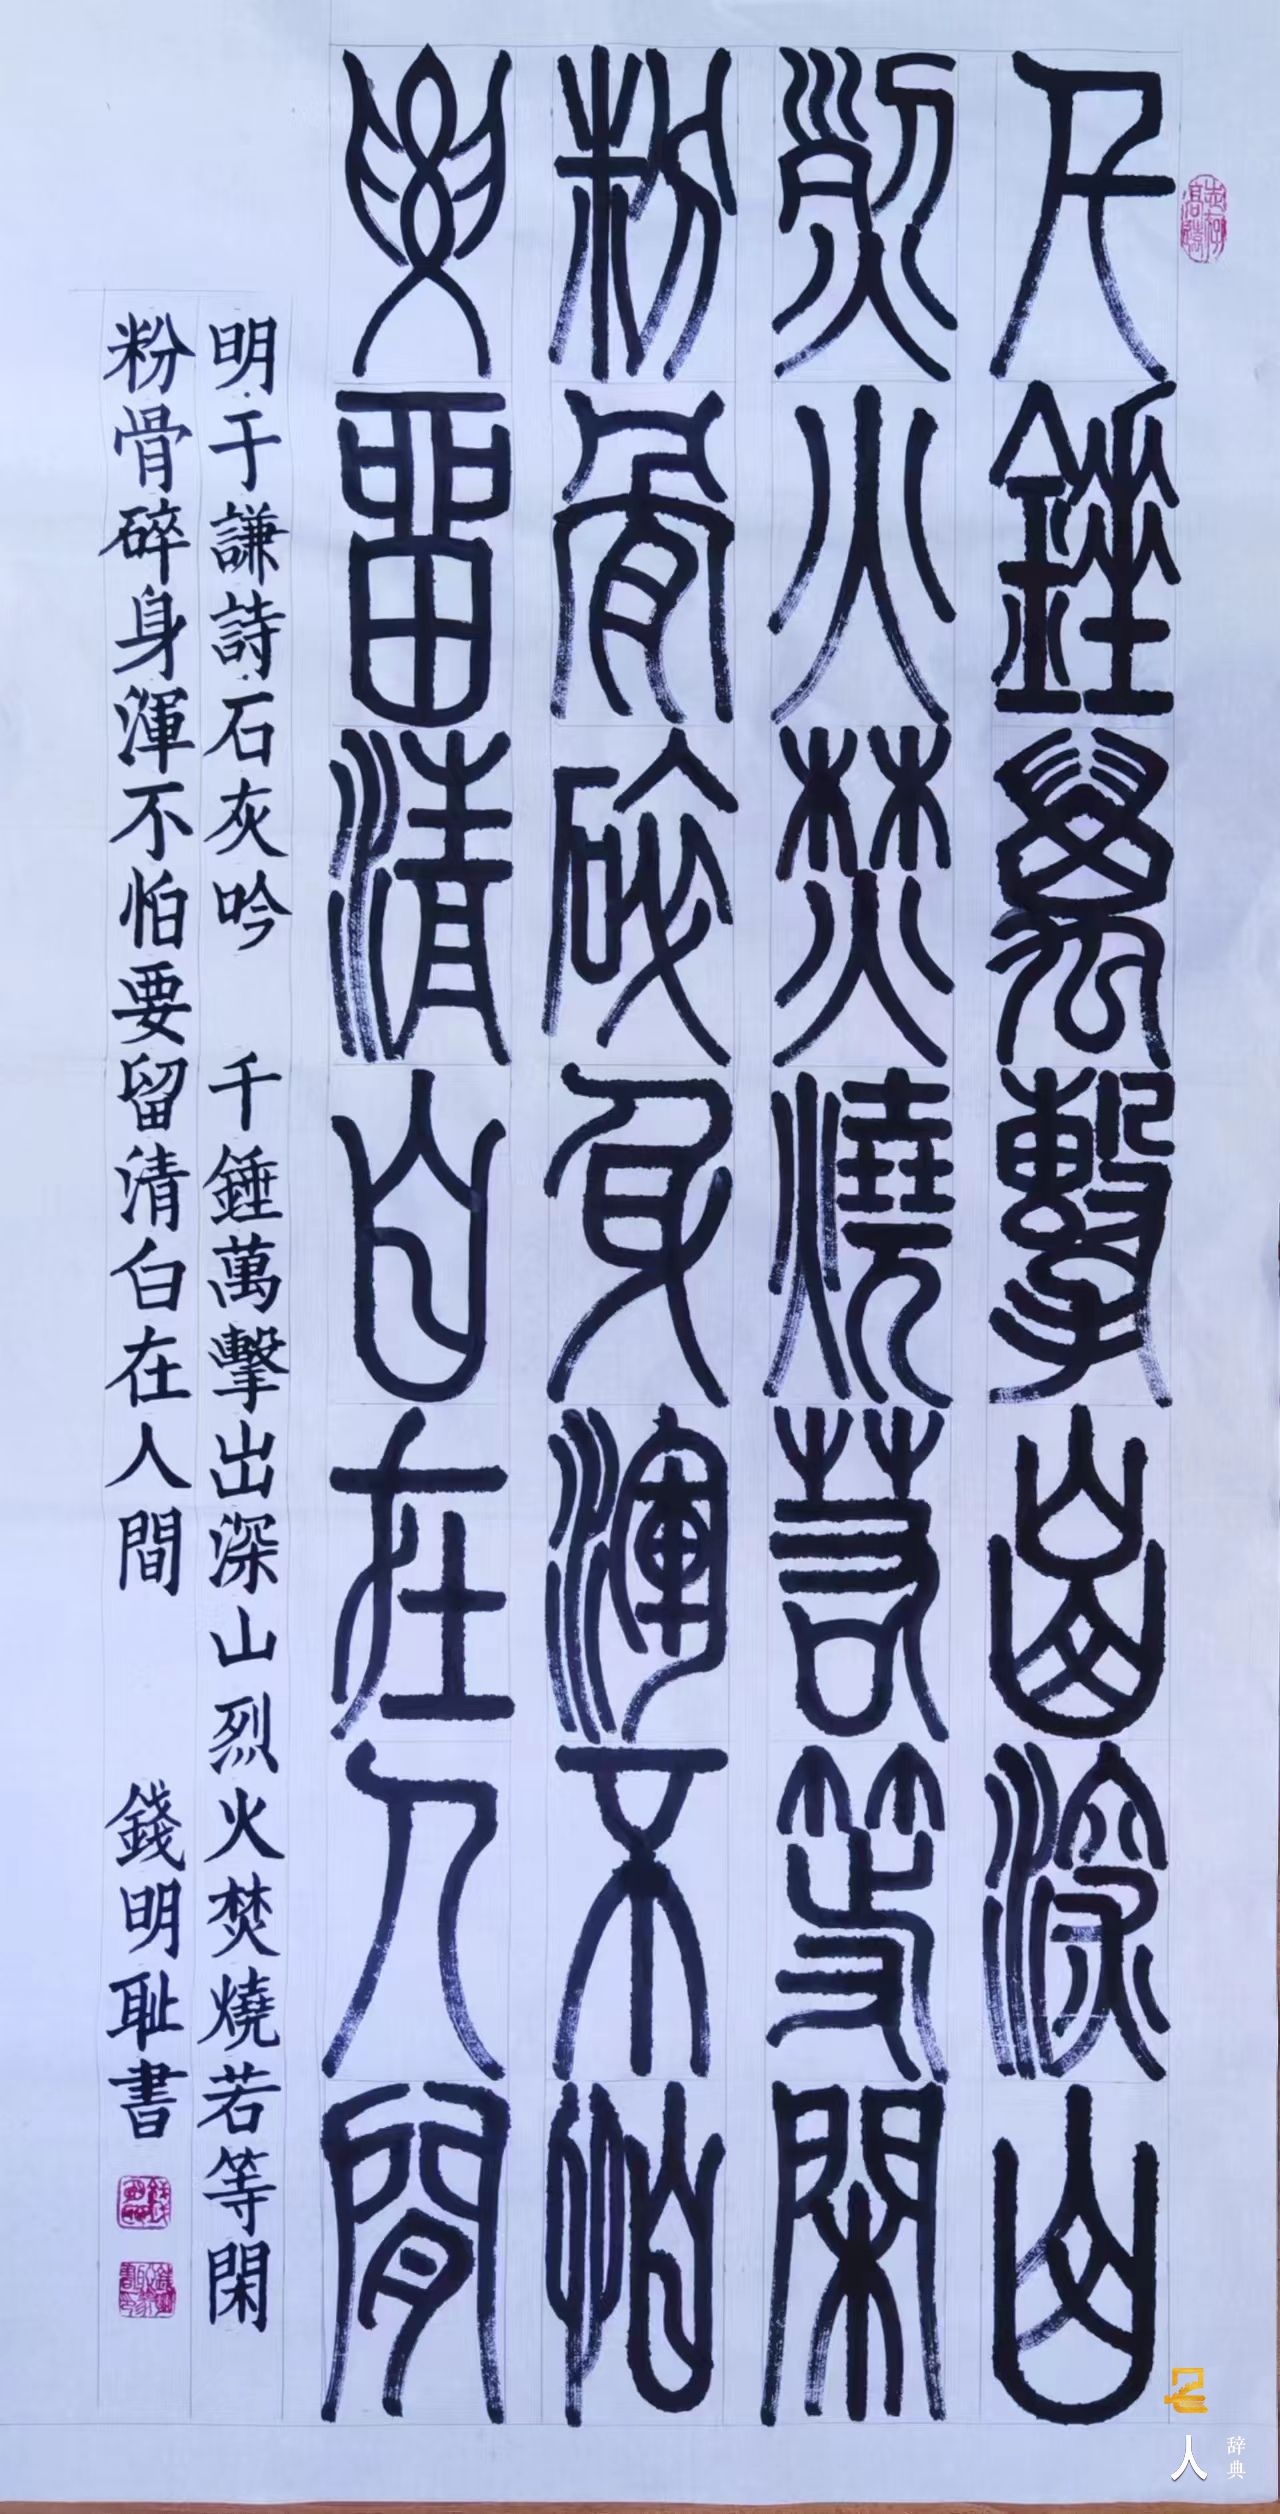 千錘萬擊出深山
烈火焚燒若等閑
粉骨碎身渾不怕
要留清白在人間
明于謙詩石灰吟 千錘萬擊出深山烈火焚燒若等閑
粉骨碎身渾不怕要留清白在人間 錢明耻書
名人
辞典